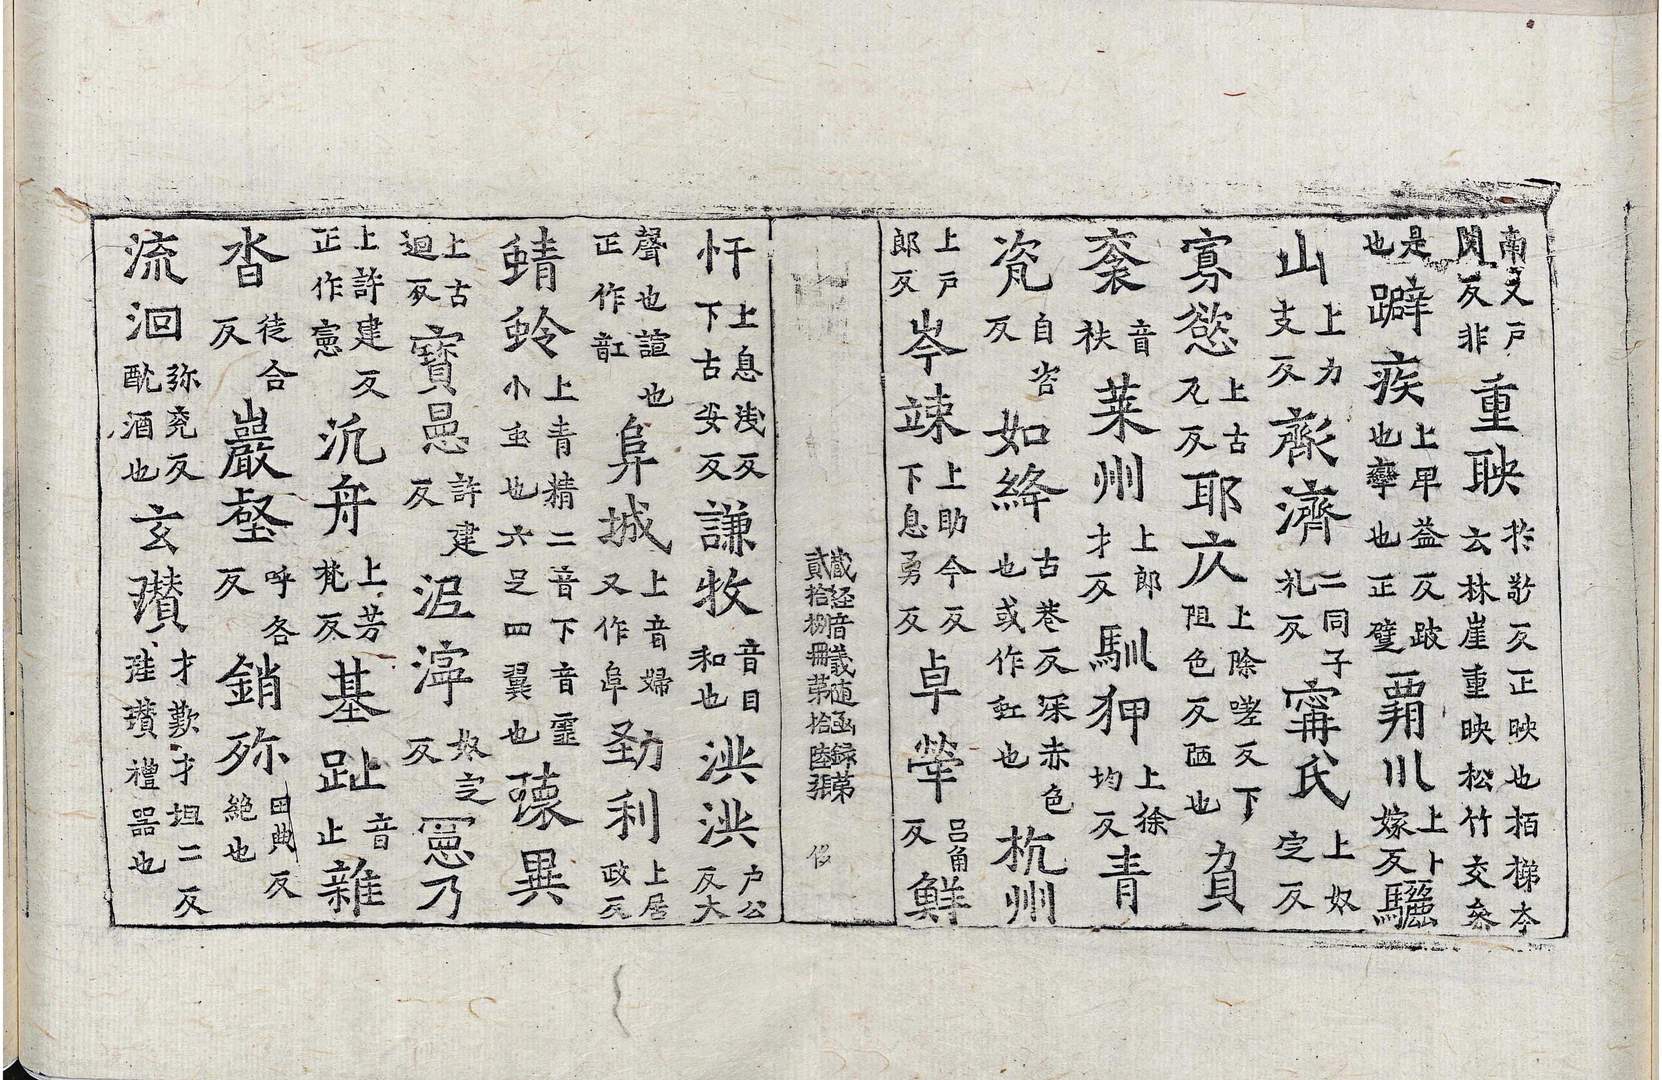 南反又戶関反非重映於敬反正映也栢梯夲云林崖重映松竹交叅
是也躃疾上卑益反跛也癴也正躄覇川上卜嫁反驪
山上力支反濟濟二同子礼反甯氏上奴定反
寡慾上古瓦反耶広上除嗟反下阻色反陋也負
袠音袟萊州上郎才反馴狎上徐均反青
瓷自咨反如絳古巷反深赤色也或作虹也杭州
上戶郎反岑竦上助今反下息勇反卓犖呂角反鮮
藏経音義随函録第貳拾捌冊第拾陸張 㐽
忓上息淺反下古安反謙牧音目和也洪洪户公反大
聲也諠也正作䡌阜城上音婦又作𨸏勁利上居政反
蜻蛉上青精二音下音靈小虫也六足四翼也瓌異
上古迴反寳㬎許建反泥濘奴定反憲乃
上許建反正作憲汎舟上芳梵反基趾音止雜
沓徒合反巖壑呼各反銷殄田典反絶也
流洄弥兖反酖酒也玄瓚才歎才坦二反珪瓚禮器也